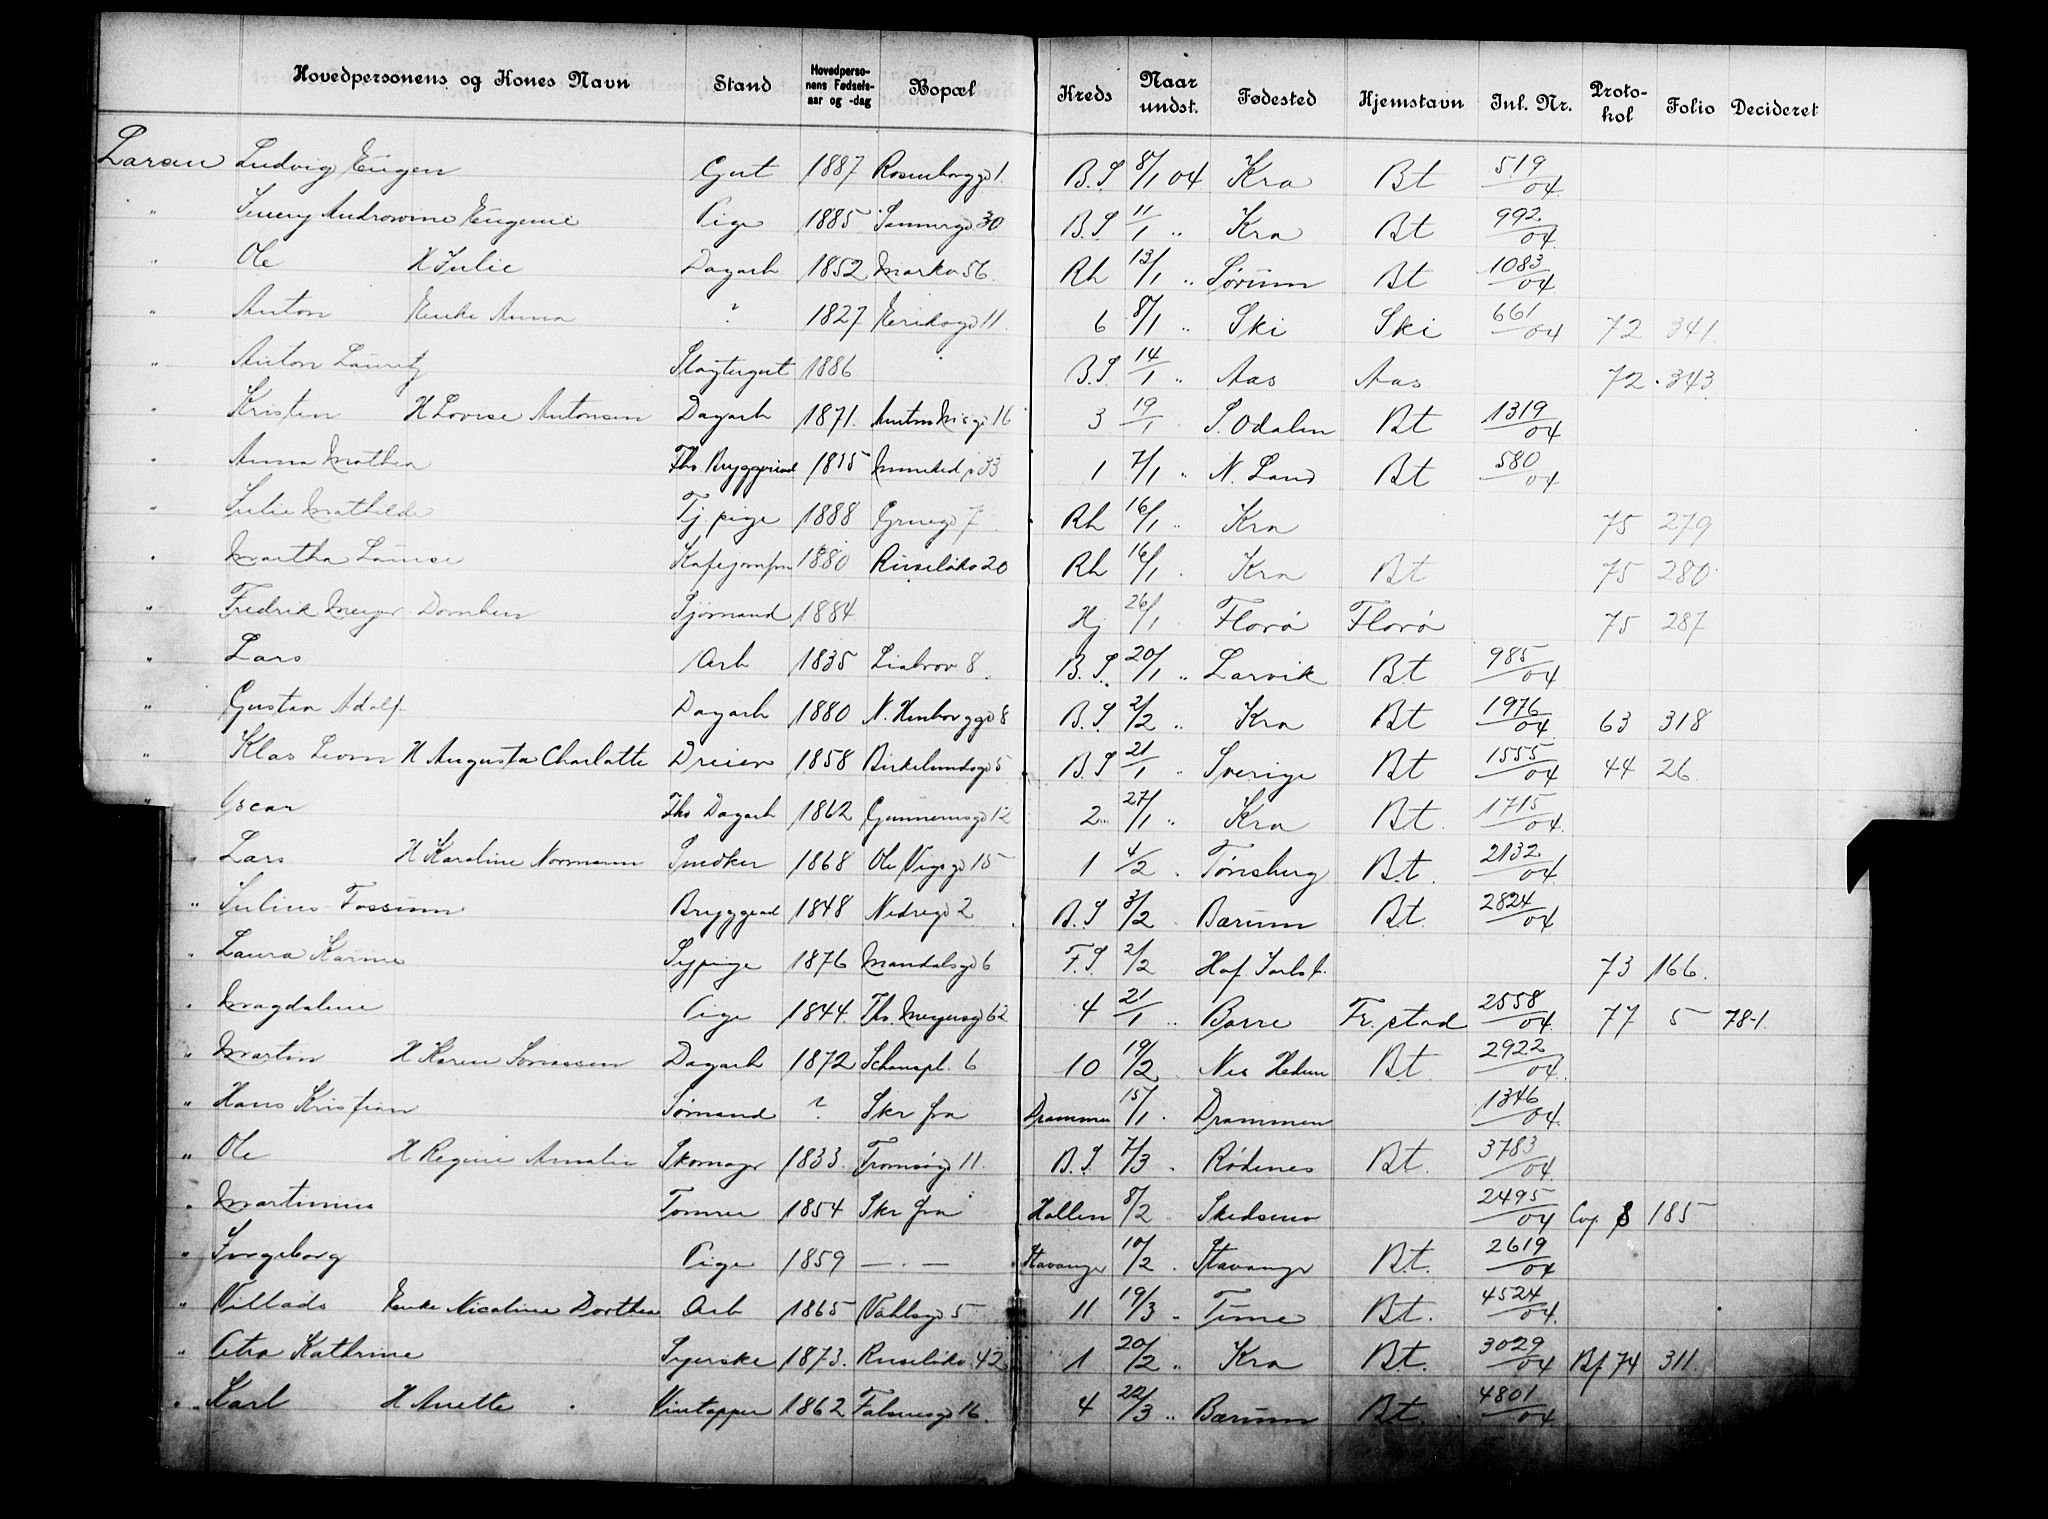 Hovedpersonens og Kones Navn Stand Hovedperso-nens Fødsels-aar og -dag Bopæl Kreds Naar undst. Fødested Hjemstavn Inl. Nr. Proto-kol Folio Decideret
Larsen Ludvig Eugen Gut 1887 Rosenborggd 1. B.S 8/1 04 Kra Bt 519/04
" Jenny Androvine Eugenie Pige 1885 Sannergd 30 B.S. 11/1 " Kra Bt 992/04
" Ole H Julie Dagarb 1852 Markv 56. Rh 13/1 " Sørum Bt 1083/04
" Anton Enke Anna ? 1827 Eriksgd 11. 6 8/1 " Ski Ski 661/04 72 341.
" Anton Lauritz Slagtergut 1886 B.S. 14/1 " Aas Aas 72. 343
" Kristen H Lovise Antonsen Dagarb 1871. 16 3 19/1 S. Odalen Bt 1319/04
" Anna Mathea Fhv. 1855 33 1 7/1 " N. Land Bt 580/04
" Julie Mathilde Tj. pige 1888 Grüngd 7 Rh 16/1 " Kra 75 279
" Martha Louise Kafejomfru 1880 Ruseløkv 20 Rh 16/1 . Kra Bt 75 280
" Fredrik Meyer Dornhen Sjømand 1884 Hj 26/1 . Florø Florø 75 287
" Lars Arb 1835 Liabrov 8. B.S. 20/1 " Larvik Bt 985/04
" Gustav Adolf Dagarb 1880 8 B.S 2/2 " Kra Bt 1976/04 63 318
" Klas Leom H Augusta Charlotte Dreier 1858 Birkelundsgd 5 B.S 21/1 " Sverige Bt 1555/04 44 26
" Oscar Fhv Dagarb 1862 Gunnerusgd 12 2 27/1 " Kra Bt. 1715/04.
" Lars H Karoline Normann Snedker 1868 Ole Vigsgd 15 1 4/2 . Tønsberg Bt. 2132/04
" Julius Fossum Bryggead 1848 Nedregd 2 B.S 3/2 Bærum Bt. 2824/04
" Laura Karine Sypige 1876 Mandalsgd 6 F.S. 2/2 Hof Jarlsb. 73 166.
" Magdaline Pige 1844. Th. Meyersgd 62 4 21/1 " Borre Fr. stad 2558/04 77 5 78-1.
" Martin H Karen Jonassen Dagarb 1872 Schouspl. 6 10 19/2 Nes Hedm Bt. 2922/04
" Hans Kristian Sømand ? Skr fra Drammen 15/1 . Drammen 1346/04.
" Ole H Regine Amalie Skomager 1833. Tromsøgd 11. B.S. 7/3 . Rødenes Bt. 3783/04
" Martinius Tømrer 1854 Skr fra Hollen 8/2 Skedsmo 2495/04 Cop 8 185
" Ingeborg Pige 1859 — . — Stavanger 10/2 . Stavanger Bt. 2619/04
" Villads Enke Nicoline Dorthea Arb 1865 Vahlsgd 5 11 19/3 . Time Bt. 4524/04.
" Petra Kathrine Syerske 1873. Ruseløkv. 42 1 20/2 " Kra Bt. 3029/04 Bf 74 311.
" Karl H Anette Vintapper 1862 Falsensgd 16. 4 22/3 " Bærum Bt. 4801/04